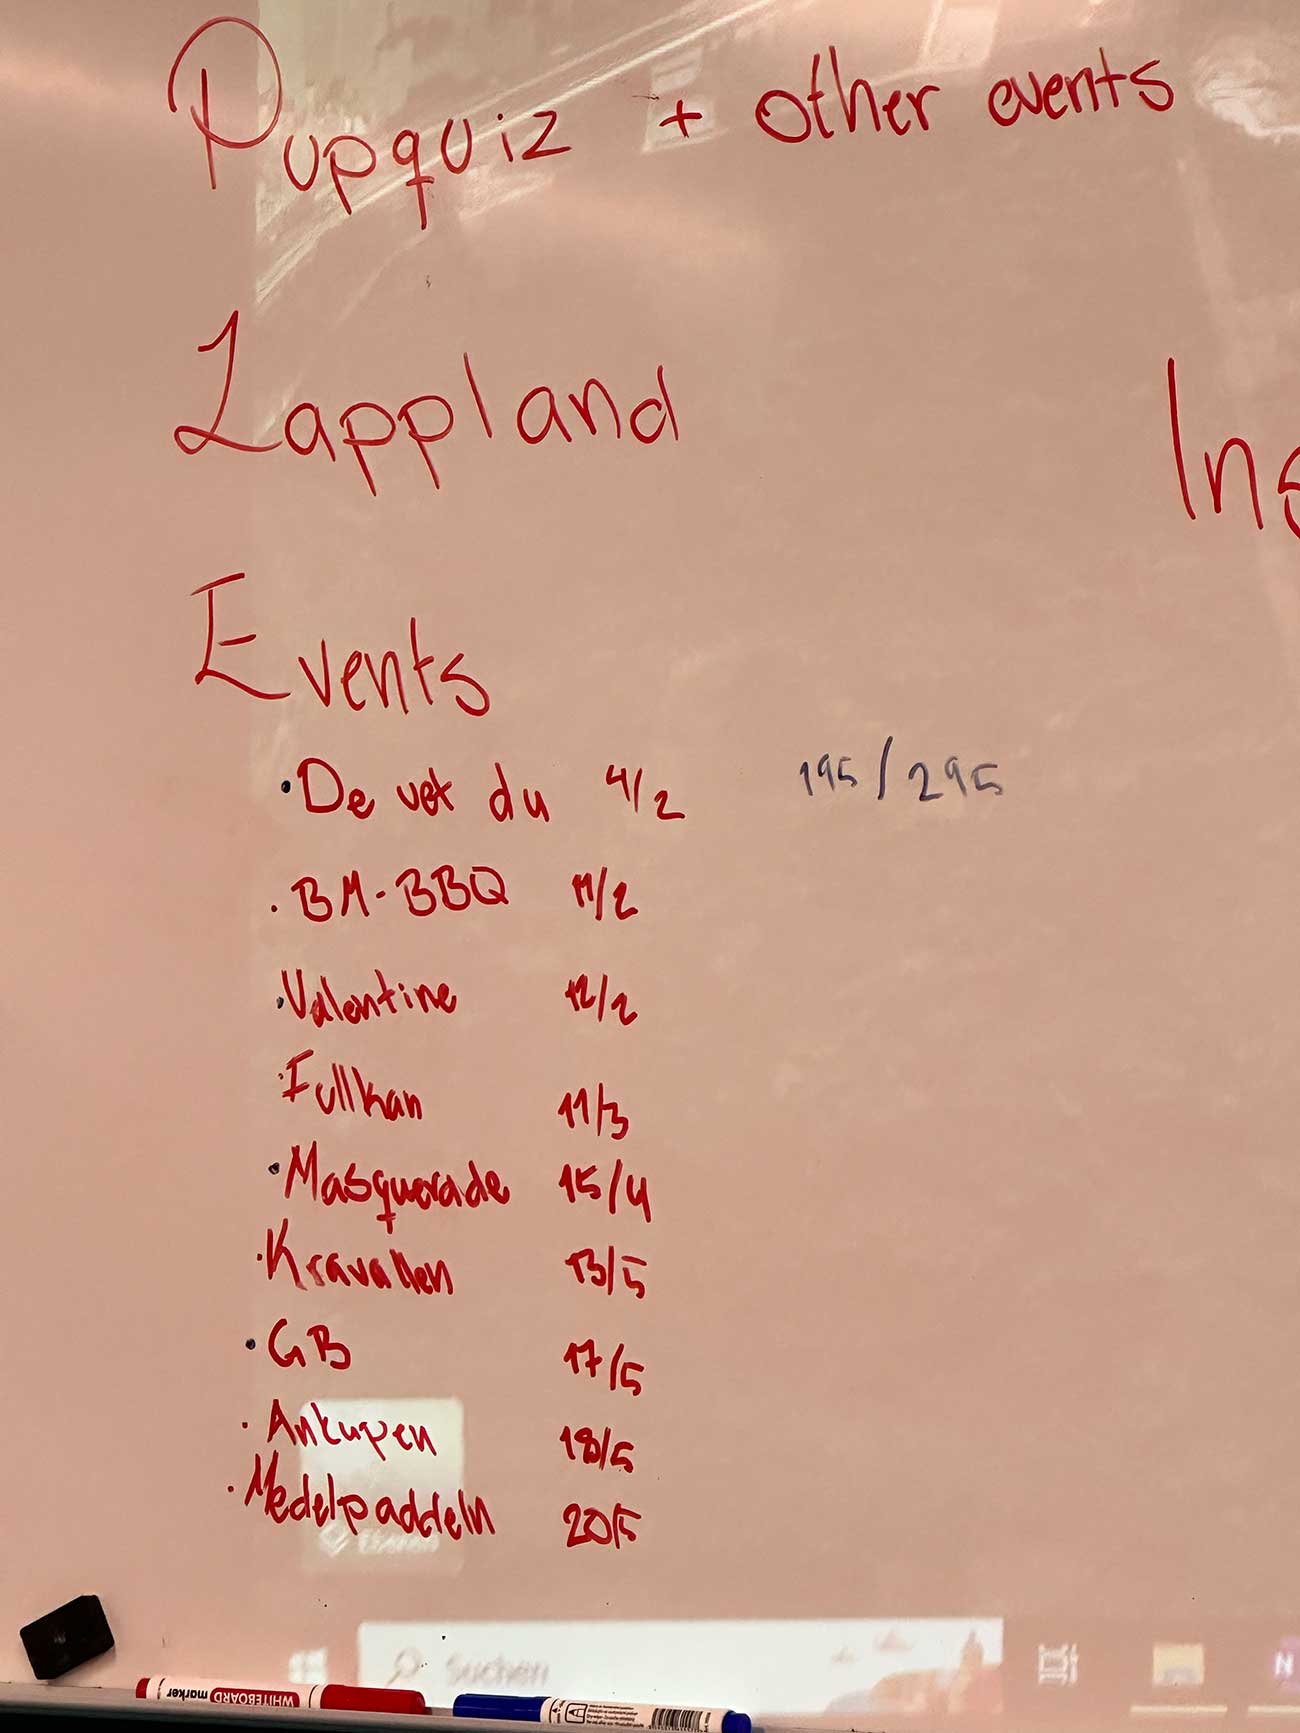 Pupquiz + other events
Lappland
Ins
Events
• De vet du 4/2 195/295
• BM-BBQ 11/2
• Valentine 12/2
• Fullkan 11/3
• Masquerade 15/4
• Kravallen 13/5
• GB 17/5
• Ankupen 18/5
• Medelpaddeln 20/5
Suchen
WHITEBOARD marker